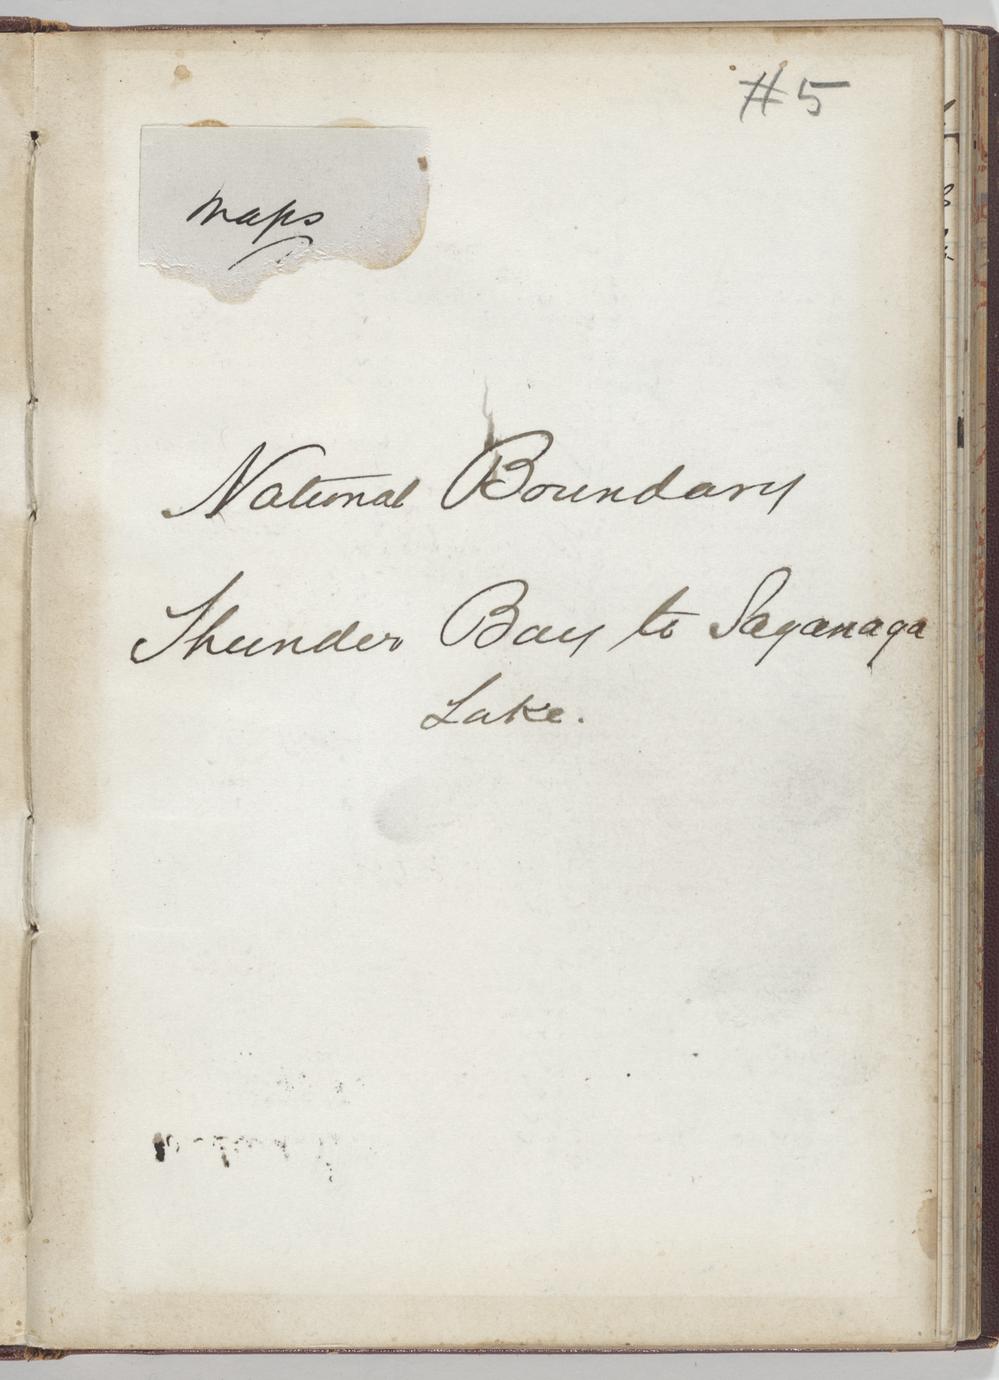 #5
Maps
National Boundary
Thunder Bay to Saganaga
Lake.